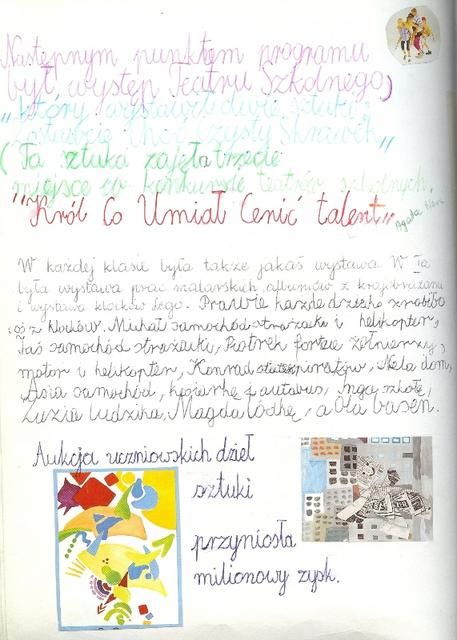 Następnym punktem programu
był występ Teatru Szkolnego,
który wystawił dwie sztuki:
"Zostawcie Choć Czysty Skrawek"
(Ta sztuka zajęła trzecie
miejsce w konkursie teatrów szkolnych.
"Król Co Umiał Cenić talent"
Agata
W każdej klasie była także jakaś wystawa. W Ia
była wystawa prac malarskich, albumów z krajobrazami
i wystawa klocków Lego. Prawie każde dziecko zrobiło
coś z klocków. Michał samochód strażacki i helikopter,
Jaś samochód strażacki, Piotrek fortece żołnierzy,
motor i helikopter, Konrad statek piratów, Hela dom,
Asia samochód, koparkę i autobus, Inga szkołę,
Zuzia ludzika, Magda łódkę, a Ola basen.
Aukcja uczniowskich dzieł
sztuki
przyniosła
milionowy zysk.